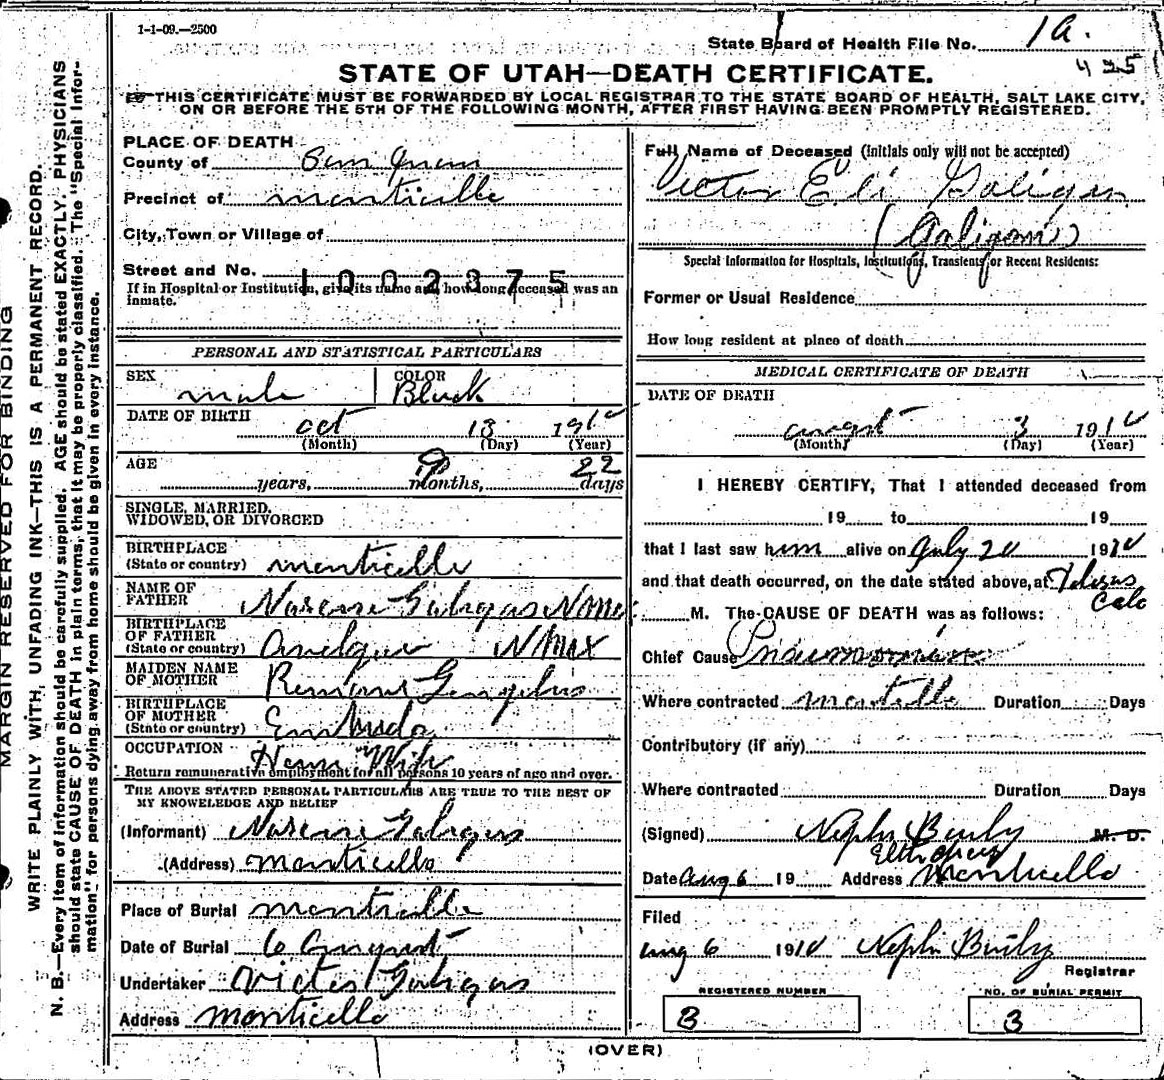 1-1-09.—2500
State Board of Health File No. 1a.
425
STATE OF UTAH—DEATH CERTIFICATE.
THIS CERTIFICATE MUST BE FORWARDED BY LOCAL REGISTRAR TO THE STATE BOARD OF HEALTH, SALT LAKE CITY,
ON OR BEFORE THE 5TH OF THE FOLLOWING MONTH, AFTER FIRST HAVING BEEN PROMPTLY REGISTERED.
MARGIN RESERVED FOR BINDING
WRITE PLAINLY WITH, UNFADING INK—THIS IS A PERMANENT RECORD.
N. B.—Every item of information should be carefully supplied. AGE should be stated EXACTLY. PHYSICIANS
should state CAUSE OF DEATH in plain terms, that it may be properly classified. The "Special Infor-
mation" for persons dying away from home should be given in every instance.
PLACE OF DEATH
County of San Juan
Precinct of Monticello
City, Town or Village of
Street and No.
1002375
If in Hospital or Institution, give its name and how long deceased was an
inmate.
PERSONAL AND STATISTICAL PARTICULARS
SEX male COLOR Black
DATE OF BIRTH Oct 13 191
(Month) (Day) (Year)
AGE
years, 9 months, 22 days
SINGLE, MARRIED,
WIDOWED, OR DIVORCED
BIRTHPLACE
(State or country) Monticello
NAME OF
FATHER
BIRTHPLACE
OF FATHER
(State or country) N Mex
MAIDEN NAME
OF MOTHER
BIRTHPLACE
OF MOTHER
(State or country) Embudo
OCCUPATION
Return remunerative employment for all persons 10 years of age and over.
THE ABOVE STATED PERSONAL PARTICULARS ARE TRUE TO THE BEST OF
MY KNOWELEDGE AND BELIEF
(Informant)
(Address) Monticello
Place of Burial Monticello
Date of Burial 6 August
Undertaker Victor
Address Monticello
Full Name of Deceased (Initials only will not be accepted)
Victor Eli Galigan
(Galigan)
Special Information for Hospitals, Institutions, Transients or Recent Residents:
Former or Usual Residence
How long resident at place of death
MEDICAL CERTIFICATE OF DEATH
DATE OF DEATH
August 3 1910
(Month) (Day) (Year)
I HEREBY CERTIFY, That I attended deceased from
19 to 19
that I last saw him alive on July 20 1910
and that death occurred, on the date stated above, at
Colo
M. The CAUSE OF DEATH was as follows:
Chief Cause Pneumonia
Where contracted Monticello Duration Days
Contributory (if any)
Where contracted Duration Days
(Signed) Nephi Baily M. D.
Date Aug 6 19 Address Monticello
Filed
Aug 6 1910 Nephi Baily
Registrar
REGISTERED NUMBER
3
NO. OF BURIAL PERMIT
3
(OVER)